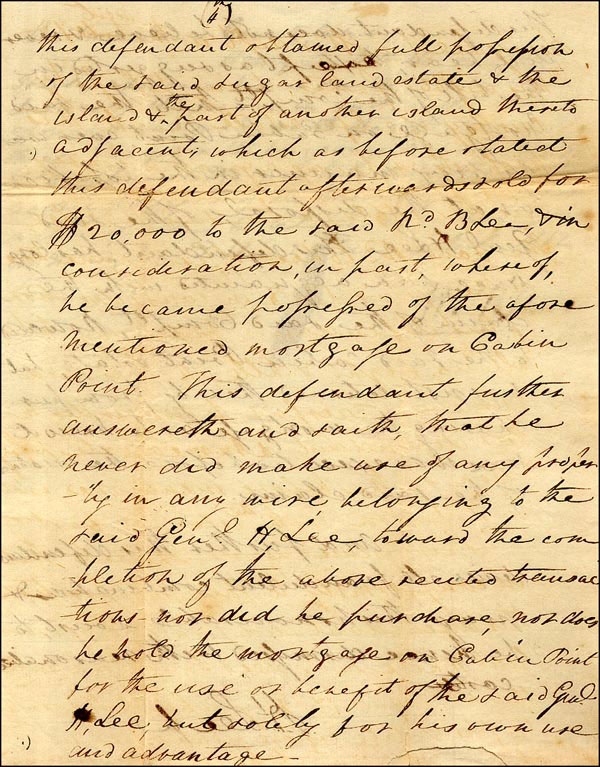 4
this defendant obtained full possession
of the said sugar land estate & the
island & the part of another island thereto
adjacent, which as before stated
this defendant afterwards sold for
$20,000 to the said Rd. B Lee, & in
consideration, in part, whereof,
he became possessed of the afore
mentioned mortgage on Cabin
Point. This defendant further
answereth and saith, that he
never did make use of any proper
-ty in any wise, belonging to the
said Genl H Lee, toward the com
pletion of the above recited transac
tions nor did he purchase, nor does
he hold the mortgage on Cabin Point
for the use or benefit of the said Genl.
H. Lee, but solely for his own use
and advantage -